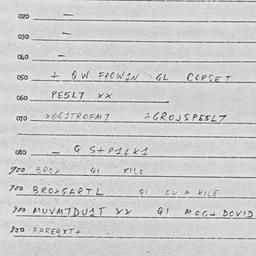 020 —
030 —
040 —
050 + QW FROW1N GL CORSET
060 PE5L7 XX
070 +GROJSPE5L7
080 — Q S+P1LK1
900 BROX G1 KILE
700 BROXGARTL G1 CU A KILE
900 MUVM7DU1T XX G1 MOG+ DOVID
900 FARE4XT+